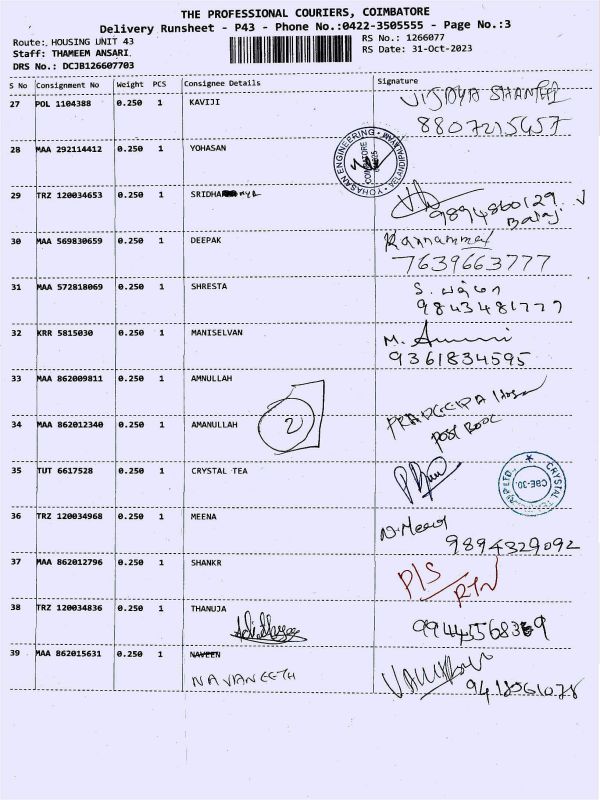 THE PROFESSIONAL COURIERS, COIMBATORE
Delivery Runsheet - P43 - Phone No.:0422-3505555 - Page No.:3
Route: HOUSING UNIT 43 RS No.: 1266077
Staff: THAMEEM ANSARI RS Date: 31-Oct-2023
DRS No.: DCJB126607703
S No Consignment No Weight PCS Consignee Details Signature
27 POL 1104388 0.250 1 KAVIJI VIJAYA SHANTHI
8807215457
28 MAA 292114412 0.250 1 YOHASAN YOHASAN ENGINEERING COIMBATORE
29 TRZ 120034653 0.250 1 9894860129
Balaj
30 MAA 569830659 0.250 1 DEEPAK Kannammal
7639663777
31 MAA 572818069 0.250 1 SHRESTA S.
9843481777
32 KRR 5815030 0.250 1 MANISELVAN M.
9361834595
33 MAA 862009811 0.250 1 AMNULLAH
34 MAA 862012340 0.250 1 AMANULLAH 2 PRADEEPA
post
35 TUT 6617528 0.250 1 CRYSTAL TEA CRYSTAL CBE-30
36 TRZ 120034968 0.250 1 MEENA N. Meena
9894329092
37 MAA 862012796 0.250 1 SHANKR P/S
RTN
38 TRZ 120034836 0.250 1 THANUJA
39 MAA 862015631 0.250 1 NAVEEN
NAVANEETH